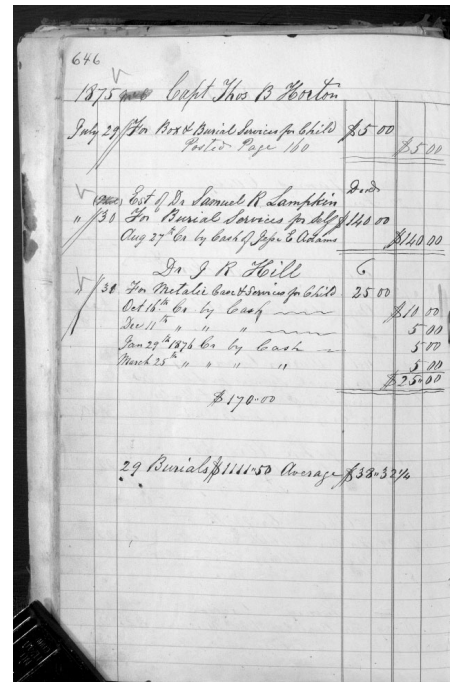 646
1875 Capt Thos B Horton
July 29 For Box & Burial Services for Child $5 00
Posted Page 160 $5 00
Est of Dr Samuel R Lampkin
" 30 For Burial Services for Self $140 00
Aug 27th Cr by Cash of Jesse E Adams $140.00
Dr J R Hill 6
" 30 For Metalic Case & Services for Child 25 00
Oct 16th Cr by Cash $10 00
Dec 11th " " " 5 00
Jan 29th 1876 Cr by Cash 5 00
March 25th " " " " 5 00
$25.00
$170.00
29 Burials $1111.50 Average $38.32 1/4